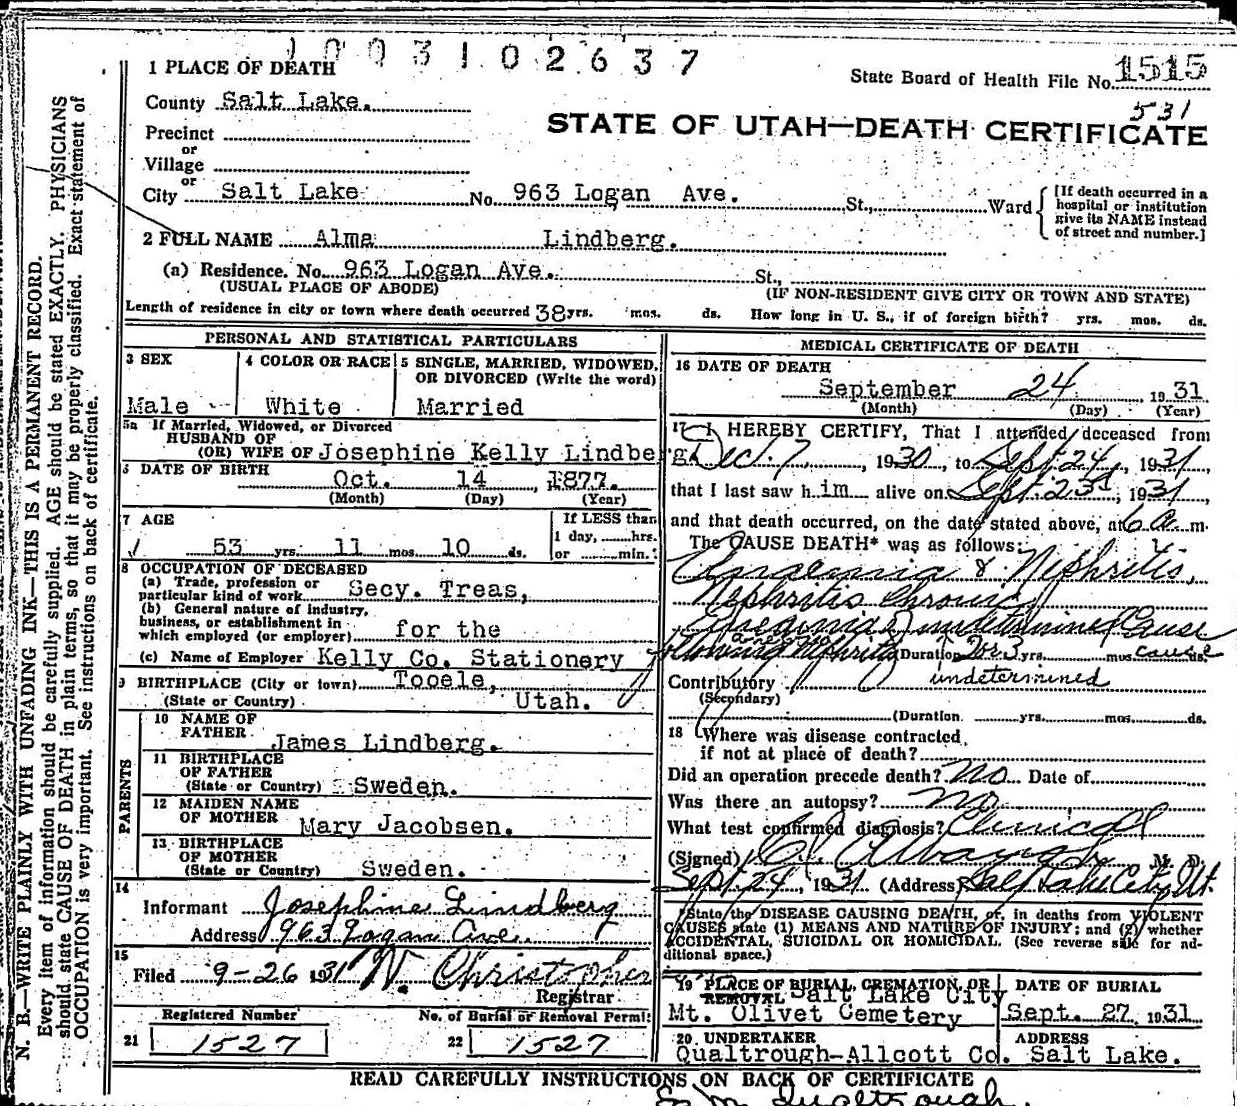 1003102637
State Board of Health File No. 1515
531
STATE OF UTAH—DEATH CERTIFICATE
1 PLACE OF DEATH
County Salt Lake.
Precinct
or
Village
or
City Salt Lake No. 963 Logan Ave. St., Ward
[If death occurred in a
hospital or institution
give its NAME instead
of street and number.]
2 FULL NAME Alma Lindberg.
(a) Residence. No. 963 Logan Ave. St.,
(USUAL PLACE OF ABODE) (IF NON-RESIDENT GIVE CITY OR TOWN AND STATE)
Length of residence in city or town where death occurred 38 yrs. mos. ds. How long in U. S., if of foreign birth? yrs. mos. ds.
PERSONAL AND STATISTICAL PARTICULARS
3 SEX
Male
4 COLOR OR RACE
White
5 SINGLE, MARRIED, WIDOWED,
OR DIVORCED (Write the word)
Married
5a If Married, Widowed, or Divorced
HUSBAND OF
(OR) WIFE OF Josephine Kelly Lindberg.
6 DATE OF BIRTH
Oct. 14, 1877.
(Month) (Day) (Year)
7 AGE
53 yrs. 11 mos. 10 ds.
If LESS than
1 day, hrs.
or min.
8 OCCUPATION OF DECEASED
(a) Trade, profession or
particular kind of work Secy. Treas,
(b) General nature of industry,
business, or establishment in
which employed (or employer) for the
(c) Name of Employer Kelly Co. Stationery
9 BIRTHPLACE (City or town) Tooele,
(State or Country) Utah.
PARENTS
10 NAME OF
FATHER James Lindberg.
11 BIRTHPLACE
OF FATHER
(State or Country) Sweden.
12 MAIDEN NAME
OF MOTHER Mary Jacobsen.
13 BIRTHPLACE
OF MOTHER
(State or Country) Sweden.
14
Informant Josephine Lindberg
Address 963 Logan Ave.
15
Filed 9-26 1931 W. Christopher
Registrar
Registered Number
21 1527
No. of Burial or Removal Permit
22 1527
MEDICAL CERTIFICATE OF DEATH
16 DATE OF DEATH
September 24 1931
(Month) (Day) (Year)
17 I HEREBY CERTIFY, That I attended deceased from
Dec. 7, 1930, to Sept 24, 1931,
that I last saw him alive on Sept. 23d, 1931,
and that death occurred, on the date stated above, at 6 a. m.
The CAUSE DEATH* was as follows:
& Nephritis,
Nephritis Chronic
undetermined Cause
Nephritis (Duration 2 or 3 yrs. mos. cause ds.
Contributory undetermined
(Secondary)
(Duration. yrs. mos. ds.
18 Where was disease contracted
if not at place of death?
Did an operation precede death? No Date of
Was there an autopsy? No
What test confirmed diagnosis? Clinical
(Signed) M. D.
Sept. 24, 1931 (Address) Salt Lake City, Ut.
*State the DISEASE CAUSING DEATH, or, in deaths from VIOLENT
CAUSES state (1) MEANS AND NATURE OF INJURY; and (2) whether
ACCIDENTAL, SUICIDAL OR HOMICIDAL. (See reverse side for ad-
ditional space.)
19 PLACE OF BURIAL, CREMATION, OR
REMOVAL Salt Lake City
Mt. Olivet Cemetery
DATE OF BURIAL
Sept. 27, 1931
20 UNDERTAKER
Qualtrough-Allcott Co.
ADDRESS
Salt Lake.
READ CAREFULLY INSTRUCTIONS ON BACK OF CERTIFICATE
N. B.—WRITE PLAINLY WITH UNFADING INK—THIS IS A PERMANENT RECORD.
Every item of information should be carefully supplied. AGE should be stated EXACTLY. PHYSICIANS
should state CAUSE OF DEATH in plain terms, so that it may be properly classified. Exact statement of
OCCUPATION is very important. See instructions on back of certificate.